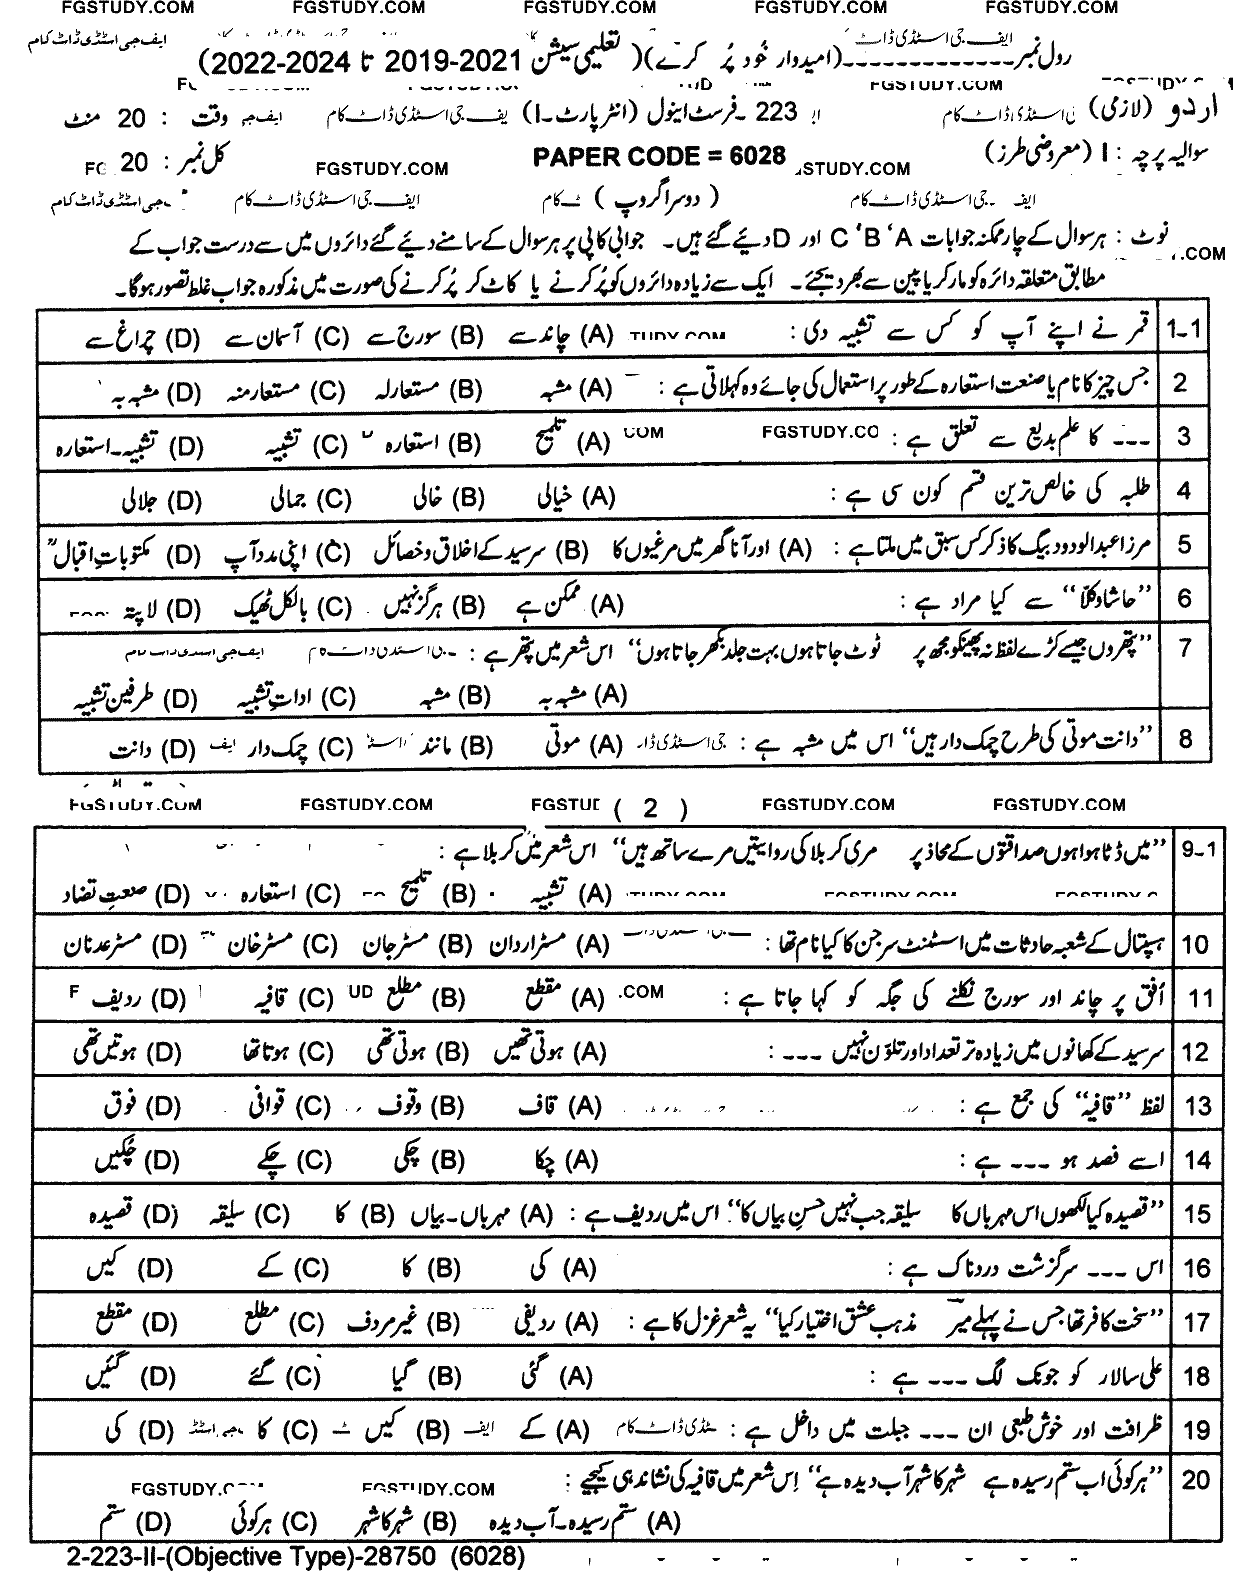 FGSTUDY.COM FGSTUDY.COM FGSTUDY.COM FGSTUDY.COM FGSTUDY.COM
رول نمبر-------------(امیدوار خود پُر کرے)( تعلیمی سیشن 2021-2019 تا 2024-2022)
اردو (لازمی) 223 ۔ فرسٹ اینول (انٹر پارٹ-I) وقت : 20 منٹ
سوالیہ پرچہ : I (معروضی طرز) PAPER CODE = 6028 کل نمبر : 20
( دوسرا گروپ )
نوٹ : ہر سوال کے چار ممکنہ جوابات A، B، C اور D دیئے گئے ہیں۔ جوابی کاپی پر ہر سوال کے سامنے دیئے گئے دائروں میں سے درست جواب کے
مطابق متعلقہ دائرہ کو مارکر یا پین سے بھر دیجئے۔ ایک سے زیادہ دائروں کو پُر کرنے یا کاٹ کر پُر کرنے کی صورت میں مذکورہ جواب غلط تصور ہوگا۔
1-1 قمر نے اپنے آپ کو کس سے تشبیہ دی : (A) چاند سے (B) سورج سے (C) آسمان سے (D) چراغ سے
2 جس چیز کا نام یا صنعت استعارہ کے طور پر استعمال کی جائے وہ کہلاتی ہے : (A) مشبہ (B) مستعارلہ (C) مستعارمنہ (D) مشبہ بہ
3 --- کا علم بدیع سے تعلق ہے : (A) تلمیح (B) استعارہ (C) تشبیہ (D) تشبیہ۔استعارہ
4 طلبہ کی خالص ترین قسم کون سی ہے : (A) خیالی (B) خالی (C) جمالی (D) جلالی
5 مرزا عبدالودود بیگ کا ذکر کس سبق میں ملتا ہے : (A) اور آنا گھر میں مرغیوں کا (B) سرسید کے اخلاق و خصائل (C) اپنی مدد آپ (D) مکتوبات اقبالؒ
6 ”حاشا وکلا“ سے کیا مراد ہے : (A) ممکن ہے (B) ہرگز نہیں (C) بالکل ٹھیک (D) لا پتہ
7 ”پتھروں جیسے کڑے لفظ نہ پھینکو مجھ پر ٹوٹ جاتا ہوں بہت جلد بکھر جاتا ہوں“ اس شعر میں پتھر ہے :
(A) مشبہ بہ (B) مشبہ (C) ادات تشبیہ (D) طرفین تشبیہ
8 ”دانت موتی کی طرح چمک دار ہیں“ اس میں مشبہ ہے : (A) موتی (B) مانند (C) چمک دار (D) دانت
FGSTUDY.COM FGSTUDY.COM ( 2 ) FGSTUDY.COM FGSTUDY.COM
9-1 ”میں ڈٹا ہوا ہوں صداقتوں کے محاذ پر مری کربلا کی روایتیں مرے ساتھ ہیں“ اس شعر میں کربلا ہے :
(A) تشبیہ (B) تلمیح (C) استعارہ (D) صنعت تضاد
10 ہسپتال کے شعبہ حادثات میں اسسٹنٹ سرجن کا کیا نام تھا : (A) مسٹر اردان (B) مسٹر جان (C) مسٹر خان (D) مسٹر عدنان
11 اُفق پر چاند اور سورج نکلنے کی جگہ کو کہا جاتا ہے : (A) مقطع (B) مطلع (C) قافیہ (D) ردیف
12 سرسید کے کھانوں میں زیادہ تر تعداد اور تلون نہیں --- : (A) ہوتی تھیں (B) ہوتی تھی (C) ہوتا تھا (D) ہوتیں تھی
13 لفظ ”قافیہ“ کی جمع ہے : (A) قاف (B) وقوف (C) قوافی (D) فوق
14 اسے فصد ہو --- ہے : (A) چکا (B) چکی (C) چکے (D) چکیں
15 ”قصیدہ کیا لکھوں اس مہرباں کا سلیقہ جب نہیں حسنِ بیاں کا“ اس میں ردیف ہے : (A) مہرباں۔بیاں (B) کا (C) سلیقہ (D) قصیدہ
16 اس --- سرگزشت دردناک ہے : (A) کی (B) کا (C) کے (D) کیں
17 ”سخت کافر تھا جس نے پہلے میر مذہب عشق اختیار کیا“ یہ شعر غزل کا ہے : (A) ردیفی (B) غیر مردف (C) مطلع (D) مقطع
18 علی سالار کو جونک لگ --- ہے : (A) گئی (B) گیا (C) گئے (D) گئیں
19 ظرافت اور خوش طبعی ان --- جبلت میں داخل ہے : (A) کے (B) کیں (C) کا (D) کی
20 ”ہر کوئی اب ستم رسیدہ ہے شہر کا شہر آب دیدہ ہے“ اِس شعر میں قافیہ کی نشاندہی کیجیے :
(A) ستم رسیدہ۔آب دیدہ (B) شہر کا شہر (C) ہر کوئی (D) ستم
2-223-II-(Objective Type)-28750 (6028)